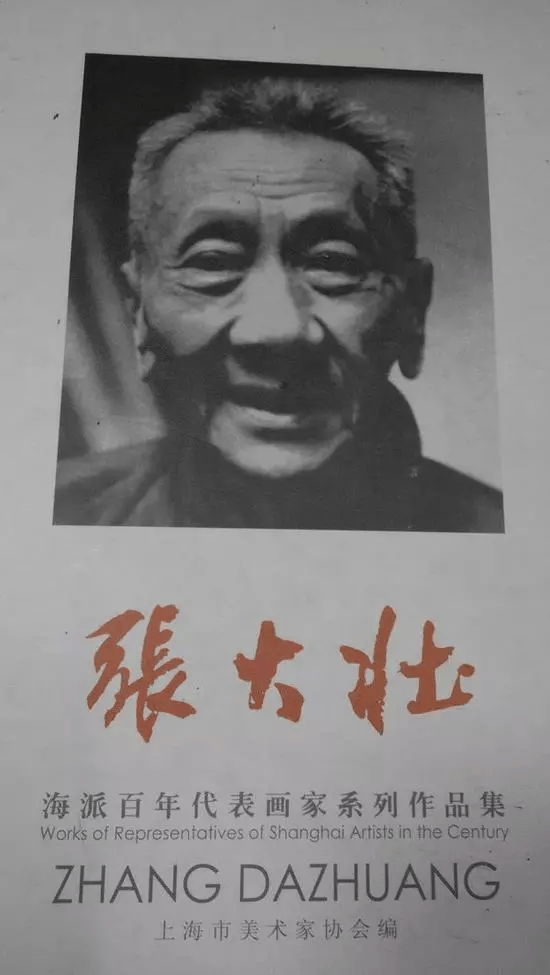 張大壯
海派百年代表画家系列作品集
Works of Representatives of Shanghai Artists in the Century
ZHANG DAZHUANG
上海市美术家协会编